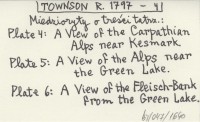 TOWNSON R. 1797 - 4
Miedzioryty o treści tatrz.:
Plate 4: A View of the Carpathian
Alps near Kesmark
Plate 5: A View of the Alps near
the Green Lake.
Plate 6: A View of the Fleisch-Bank
from the Green Lake.